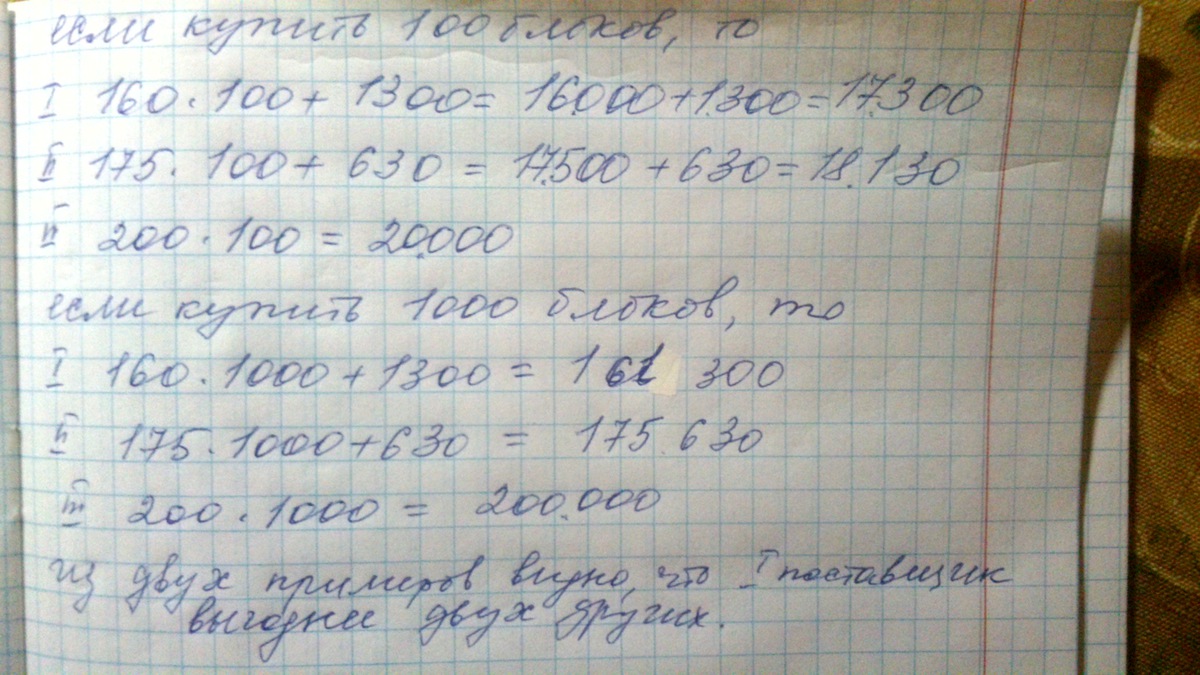 если купить 100 блоков, то
I 160 · 100 + 1300 = 16.000 + 1.300 = 17.300
II 175 · 100 + 630 = 17.500 + 630 = 18.130
II 200 · 100 = 20.000
если купить 1000 блоков, то
I 160 · 1000 + 1300 = 161 300
II 175 · 1000 + 630 = 175.630
III 200 · 1000 = 200.000
из двух примеров видно, что I поставщик
выгоднее двух других.